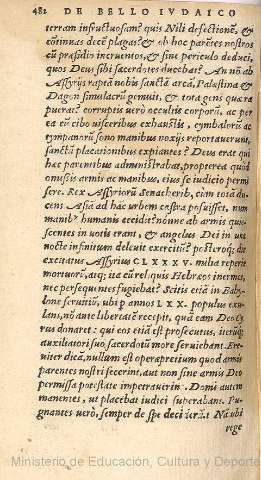 482 DE BELLO IVDAICO
terram infructuosam? quis Nili defectionẽ, &
cõtinuas decẽ plagas? & ob hoc parẽtes nostros
cũ præsidio incruentos, & sine periculo deduci,
quos Deus sibi sacerdotes ducebat? An nõ ab
Assyrijs rapta nobis sanctã arcã, Palæstina &
Dagon simulacrũ gemuit, & tota gens qua ra
puerat? corruptis vero occultis corporũ, ac per
ea cũ cibo visceribus exhaustis, cymbalorũ ac
tympanorũ sono manibus noxijs reportauerunt,
sanctã placationibus expiantes? Deus erat qui
hæc parentibus administrabat, propterea quod
omissis armis ac manibus, eius se iudicio permi
sere. Rex Assyriorũ Senacherib, cum totã du
cens Asia ad hãc urbem castra posuisset, num
manibꝰ humanis cecidit? nonne ab armis quie
scentes in votis erant, & angelus Dei in una
nocte infinitum deleuit exercitũ? posteroq; die
excitatus Assyrius CLXXXV. milia reperit
mortuorũ, atq; ita cũ reliquis Hebræos inermes,
nec persequentes fugiebat? Scitis etiã in Baby-
lone seruitiũ, ubi ꝑ annos LXX. populus exu-
lans, nõ ante libertatẽ recepit, quã eam Deo Cy
rus donaret: qui eos etiã est prosecutus, iterũq;
auxiliatori suo sacerdotũ more seruiebant. Bre-
uiter dicã, nullum est operæpretium quod armis
parentes nostri fecerint, aut non sine armis Deo
permissa potestate impetrauerint. Domi autem
manentes, ut placebat iudici superabant. Pu-
gnantes verò, semper de spe deciderũt. Nã ubi
rege
Ministerio de Educación, Cultura y Deporte